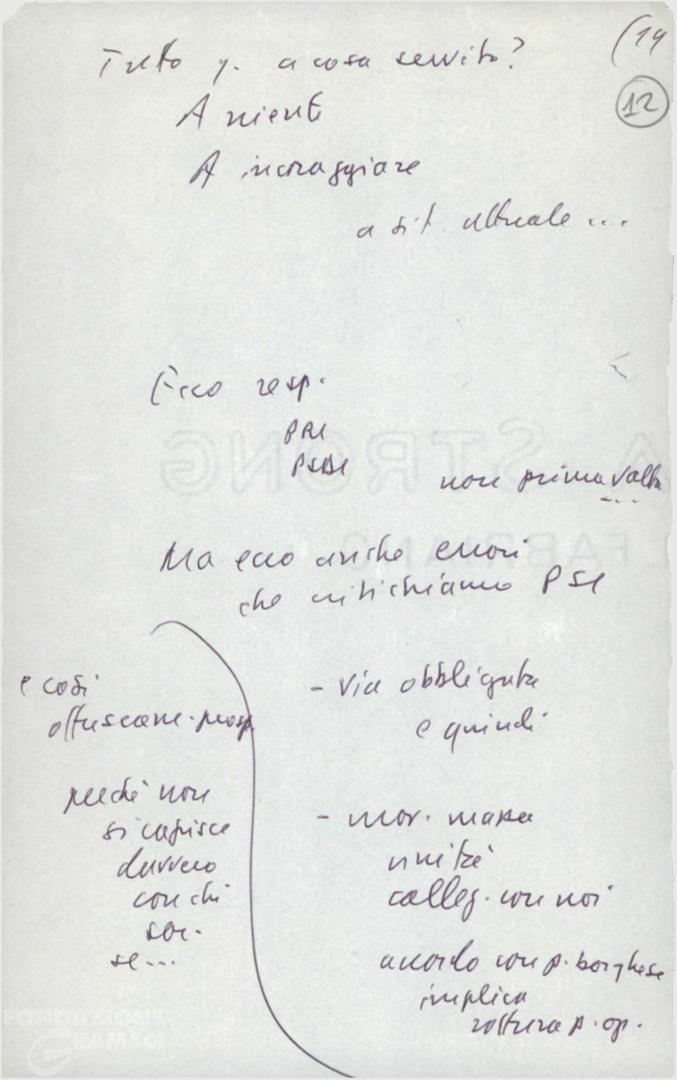 (14
12
Tutto q. a cosa servito?
A niente
A incoraggiare
a sit. attuale...
Ecco resp.
PRI
PSDI
non prima volta
...
Ma ecco anche errori
che critichiamo PSI
- via obbligata
e quindi
- mov. massa
unità
colleg. con noi
accordo con p. borghese
implica
rottura p. op.
e così
offuscam. prosp.
perché non
si capisce
davvero
con chi
soc.
se...
A STRONG
FABRIANO
FONDAZIONE
GRAMSCI